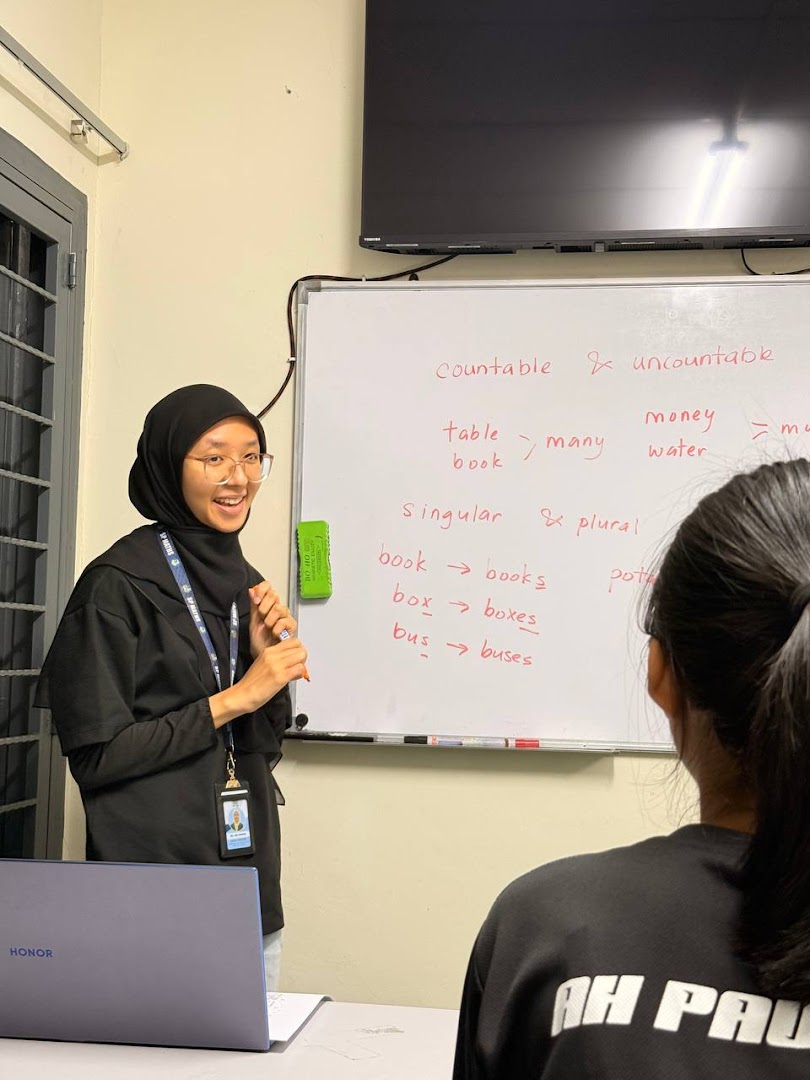 TOSHIBA
countable & uncountable
table
book
> many
money
water
singular & plural
book → books
box → boxes
bus → buses
HONOR
AH PAU